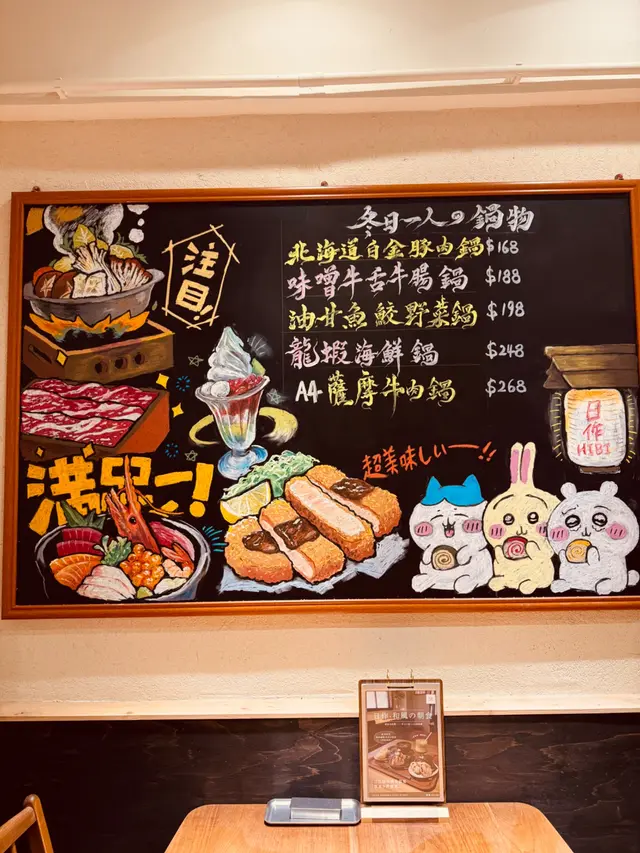 冬日一人の鍋物
注目!
北海道白金豚肉鍋 $168
味噌牛舌牛腸鍋 $188
油甘魚鮫野菜鍋 $198
龍蝦海鮮鍋 $248
A4薩摩牛肉鍋 $268
日作
HIBI
超美味しいー!!
満足ー!
和風の朝食